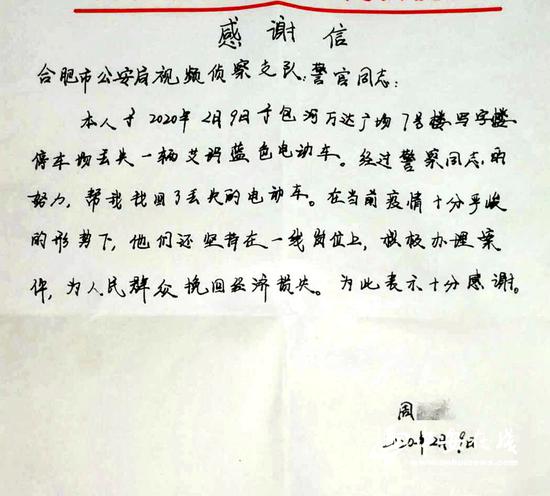 感谢信
合肥市公安局视频侦察支队：警官同志：
本人于2020年2月9日于包河万达广场7号楼写字楼
停车场丢失一辆艾玛蓝色电动车。经过警察同志的
努力，帮我找回了丢失的电动车。在当前疫情十分严峻
的形势下，他们还坚守在一线岗位上，积极办理案
件，为人民群众挽回经济损失。为此表示十分感谢。
周
2020年2月9日
在线